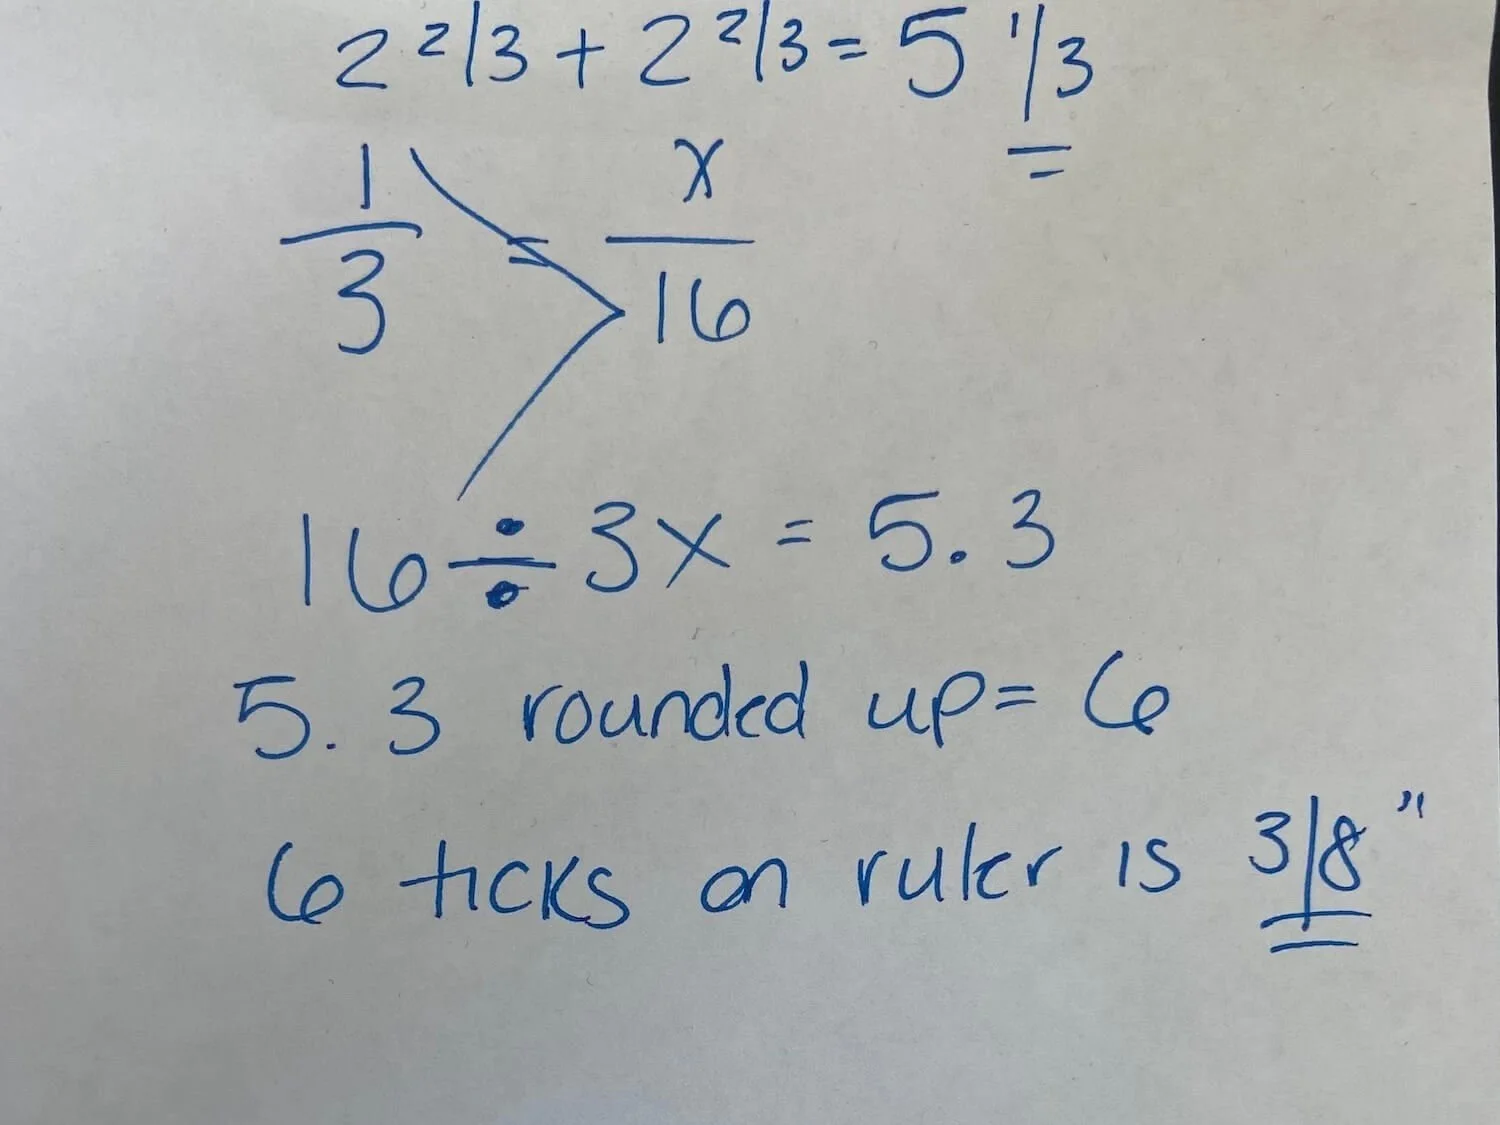 2 2/3 + 2 2/3 = 5 1/3
1 = x
3 16
16 ÷ 3x = 5.3
5.3 rounded up = 6
6 ticks on ruler is 3/8"